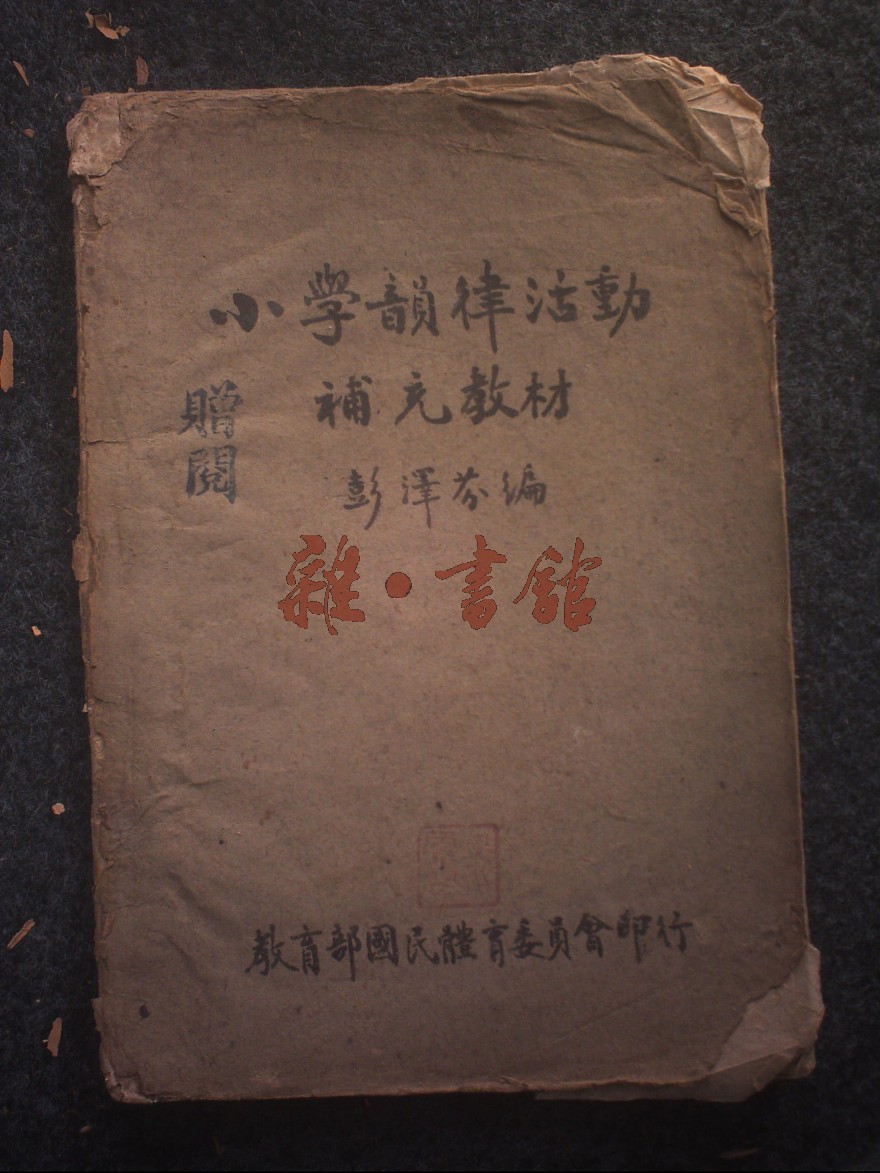 小學韻律活動
補充教材
贈閱
彭澤芬編
雜·書館
教育部國民體育委員會印行